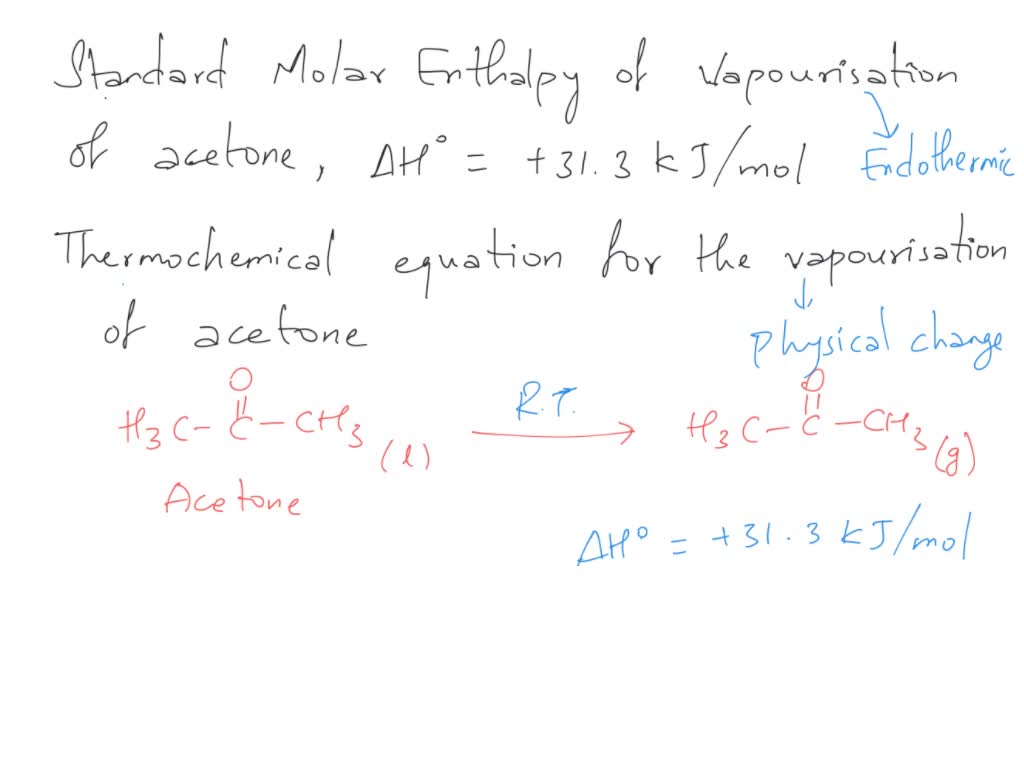 Standard Molar Enthalpy of vapourisation
of acetone, ΔH° = +31.3 kJ/mol Endothermic
Thermochemical equation for the vapourisation
of acetone physical change
O R.T. O
H3C-C-CH3 (l) → H3C-C-CH3 (g)
Acetone
ΔH° = +31.3 kJ/mol